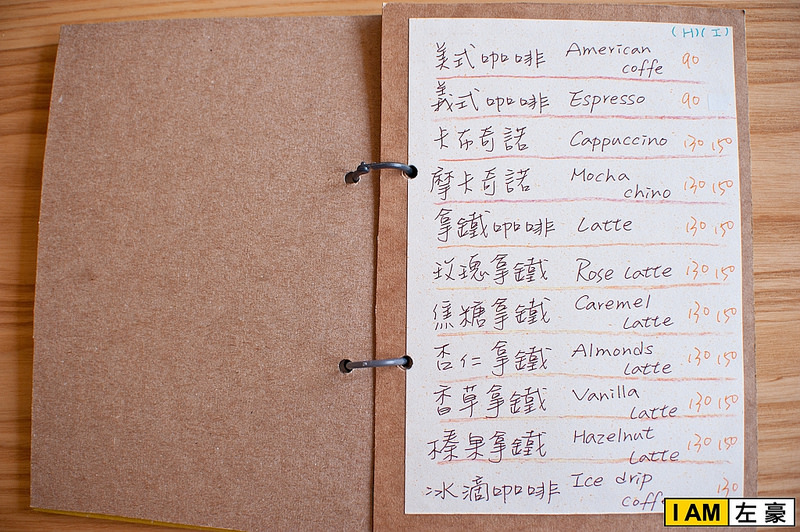 (H)(I)
美式咖啡 American 90
coffe
義式咖啡 Espresso 90
卡布奇諾 Cappuccino 130 150
摩卡奇諾 Mocha 130 150
chino
拿鐵咖啡 Latte 130 150
玫瑰拿鐵 Rose Latte 130 150
焦糖拿鐵 Caremel 130 150
Latte
杏仁拿鐵 Almonds 130 150
Latte
香草拿鐵 Vanilla 130 150
Latte
榛果拿鐵 Hazelnut 130 150
Latte
冰滴咖啡 Ice drip 130
coff
I AM 左豪